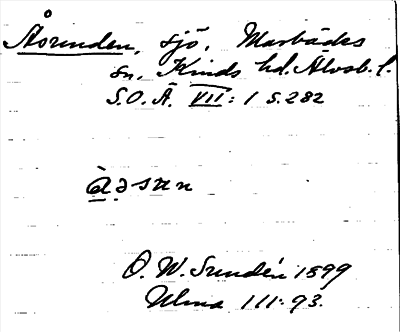 Åsunden, sjö, Marbäcks
sn, Kinds hd. Älvsb. l.
S.O.Ä. VII: 1 s. 282
O. W. Sundén 1899
Ulma 111:93.